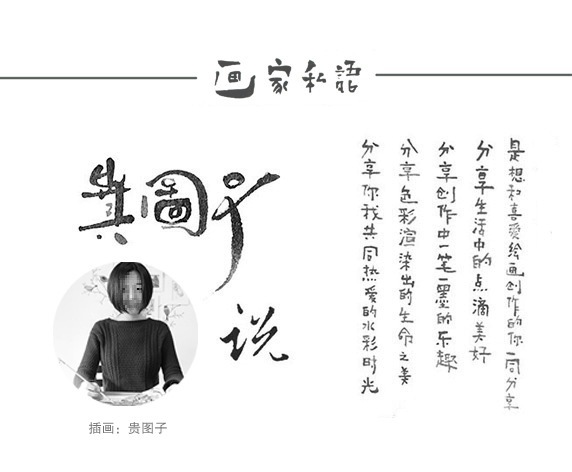 画家私語
贵圖子
说
是想和喜爱绘画创作的你一同分享
分享生活中的点滴美好
分享创作中一笔一墨的乐趣
分享色彩渲染出的生命之美
分享你我共同热爱的水彩时光
插画：贵图子